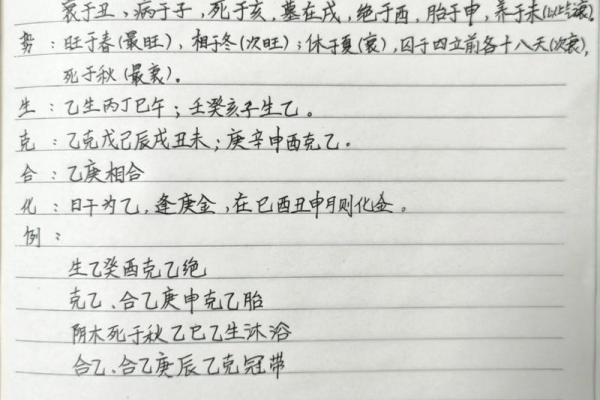 衰于丑，病于子，死于亥，墓在戌，绝于酉，胎于申，养于未(以上气衰)。
势：旺于春(最旺)，相于冬(次旺)；休于夏(衰)，囚于四立前各十八天(次衰)，
死于秋(最衰)。
生：乙生丙丁巳午；壬癸亥子生乙。
克：乙克戊己辰戌丑未；庚辛申酉克乙。
合：乙庚相合
化：日干为乙，逢庚金，在巳酉丑申月则化金。
例：
生乙癸酉克乙绝
克乙、合乙庚申克乙胎
阴木死于秋乙巳乙生沐浴
合乙、合乙庚辰乙克冠带